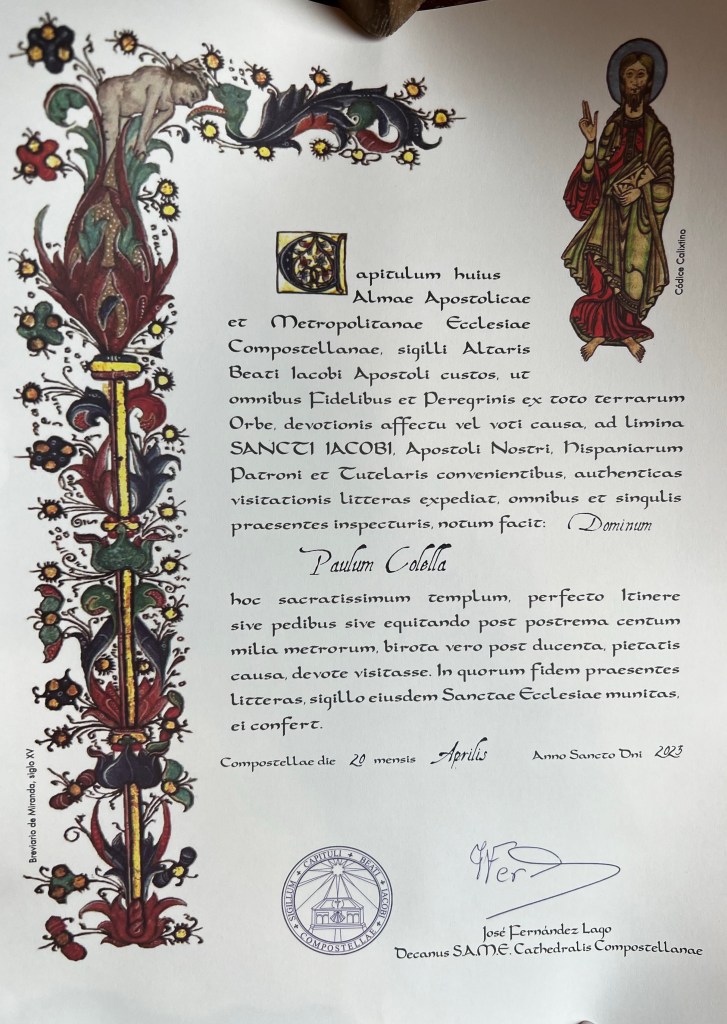 Códice Calixtino
Capitulum huius
Almae Apostolicae
et Metropolitanae Ecclesiae
Compostellanae, sigilli Altaris
Beati Iacobi Apostoli custos, ut
omnibus Fidelibus et Peregrinis ex toto terrarum
Orbe, devotionis affectu vel voti causa, ad limina
SANCTI IACOBI, Apostoli Nostri, Hispaniarum
Patroni et Tutelaris convenientibus, authenticas
visitationis litteras expediat, omnibus et singulis
praesentes inspecturis, notum facit: Dominum
Paulum Colella
hoc sacratissimum templum, perfecto Itinere
sive pedibus sive equitando post postrema centum
milia metrorum, birota vero post ducenta, pietatis
causa, devote visitasse. In quorum fidem praesentes
litteras, sigillo eiusdem Sanctae Ecclesiae munitas,
ei confert.
Compostellae die 20 mensis Aprilis Anno Sancto Dni 2023
Breviario de Miranda, siglo XV
SIGILLUM CAPITULI BEATI IACOBI COMPOSTELLAE
José Fernández Lago
Decanus S.A.M.E. Cathedralis Compostellanae